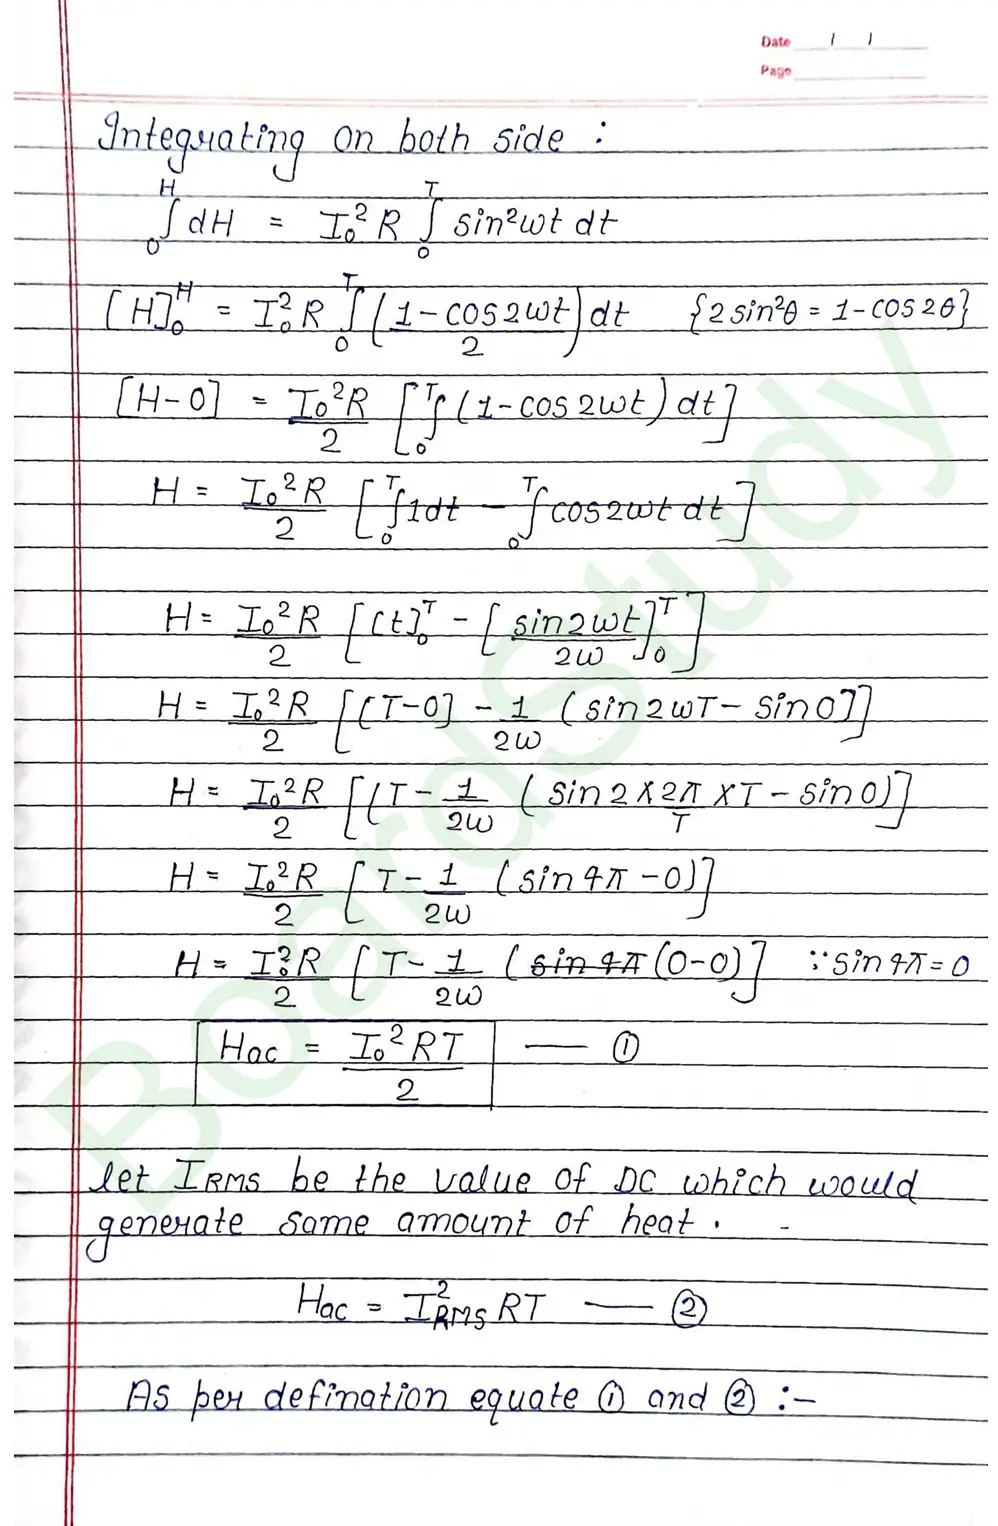 Date / /
Page
Integrating on both side :
∫₀ᴴ dH = I₀² R ∫₀ᵀ sin²ωt dt
[H]₀ᴴ = I₀² R ∫₀ᵀ (1-cos2ωt)/2 dt {2 sin²θ = 1-cos2θ}
[H-0] = I₀²R/2 [∫₀ᵀ (1-cos2ωt) dt]
H = I₀²R/2 [∫₀ᵀ 1dt - ∫₀ᵀ cos2ωt dt]
H = I₀²R/2 [[t]₀ᵀ - [sin2ωt/2ω]₀ᵀ]
H = I₀²R/2 [[T-0] - 1/2ω (sin2ωT - sin0)]
H = I₀²R/2 [(T - 1/2ω (sin2×2π/T ×T - sin0)]
H = I₀²R/2 [T - 1/2ω (sin4π - 0)]
H = I₀²R/2 [T - 1/2ω (sin4π (0-0)] ∵ sin4π = 0
Hac = I₀²RT/2 — ①
let IRMS be the value of DC which would
generate same amount of heat .
Hac = I²RMS RT — ②
As per defination equate ① and ② :-
BoardStudy